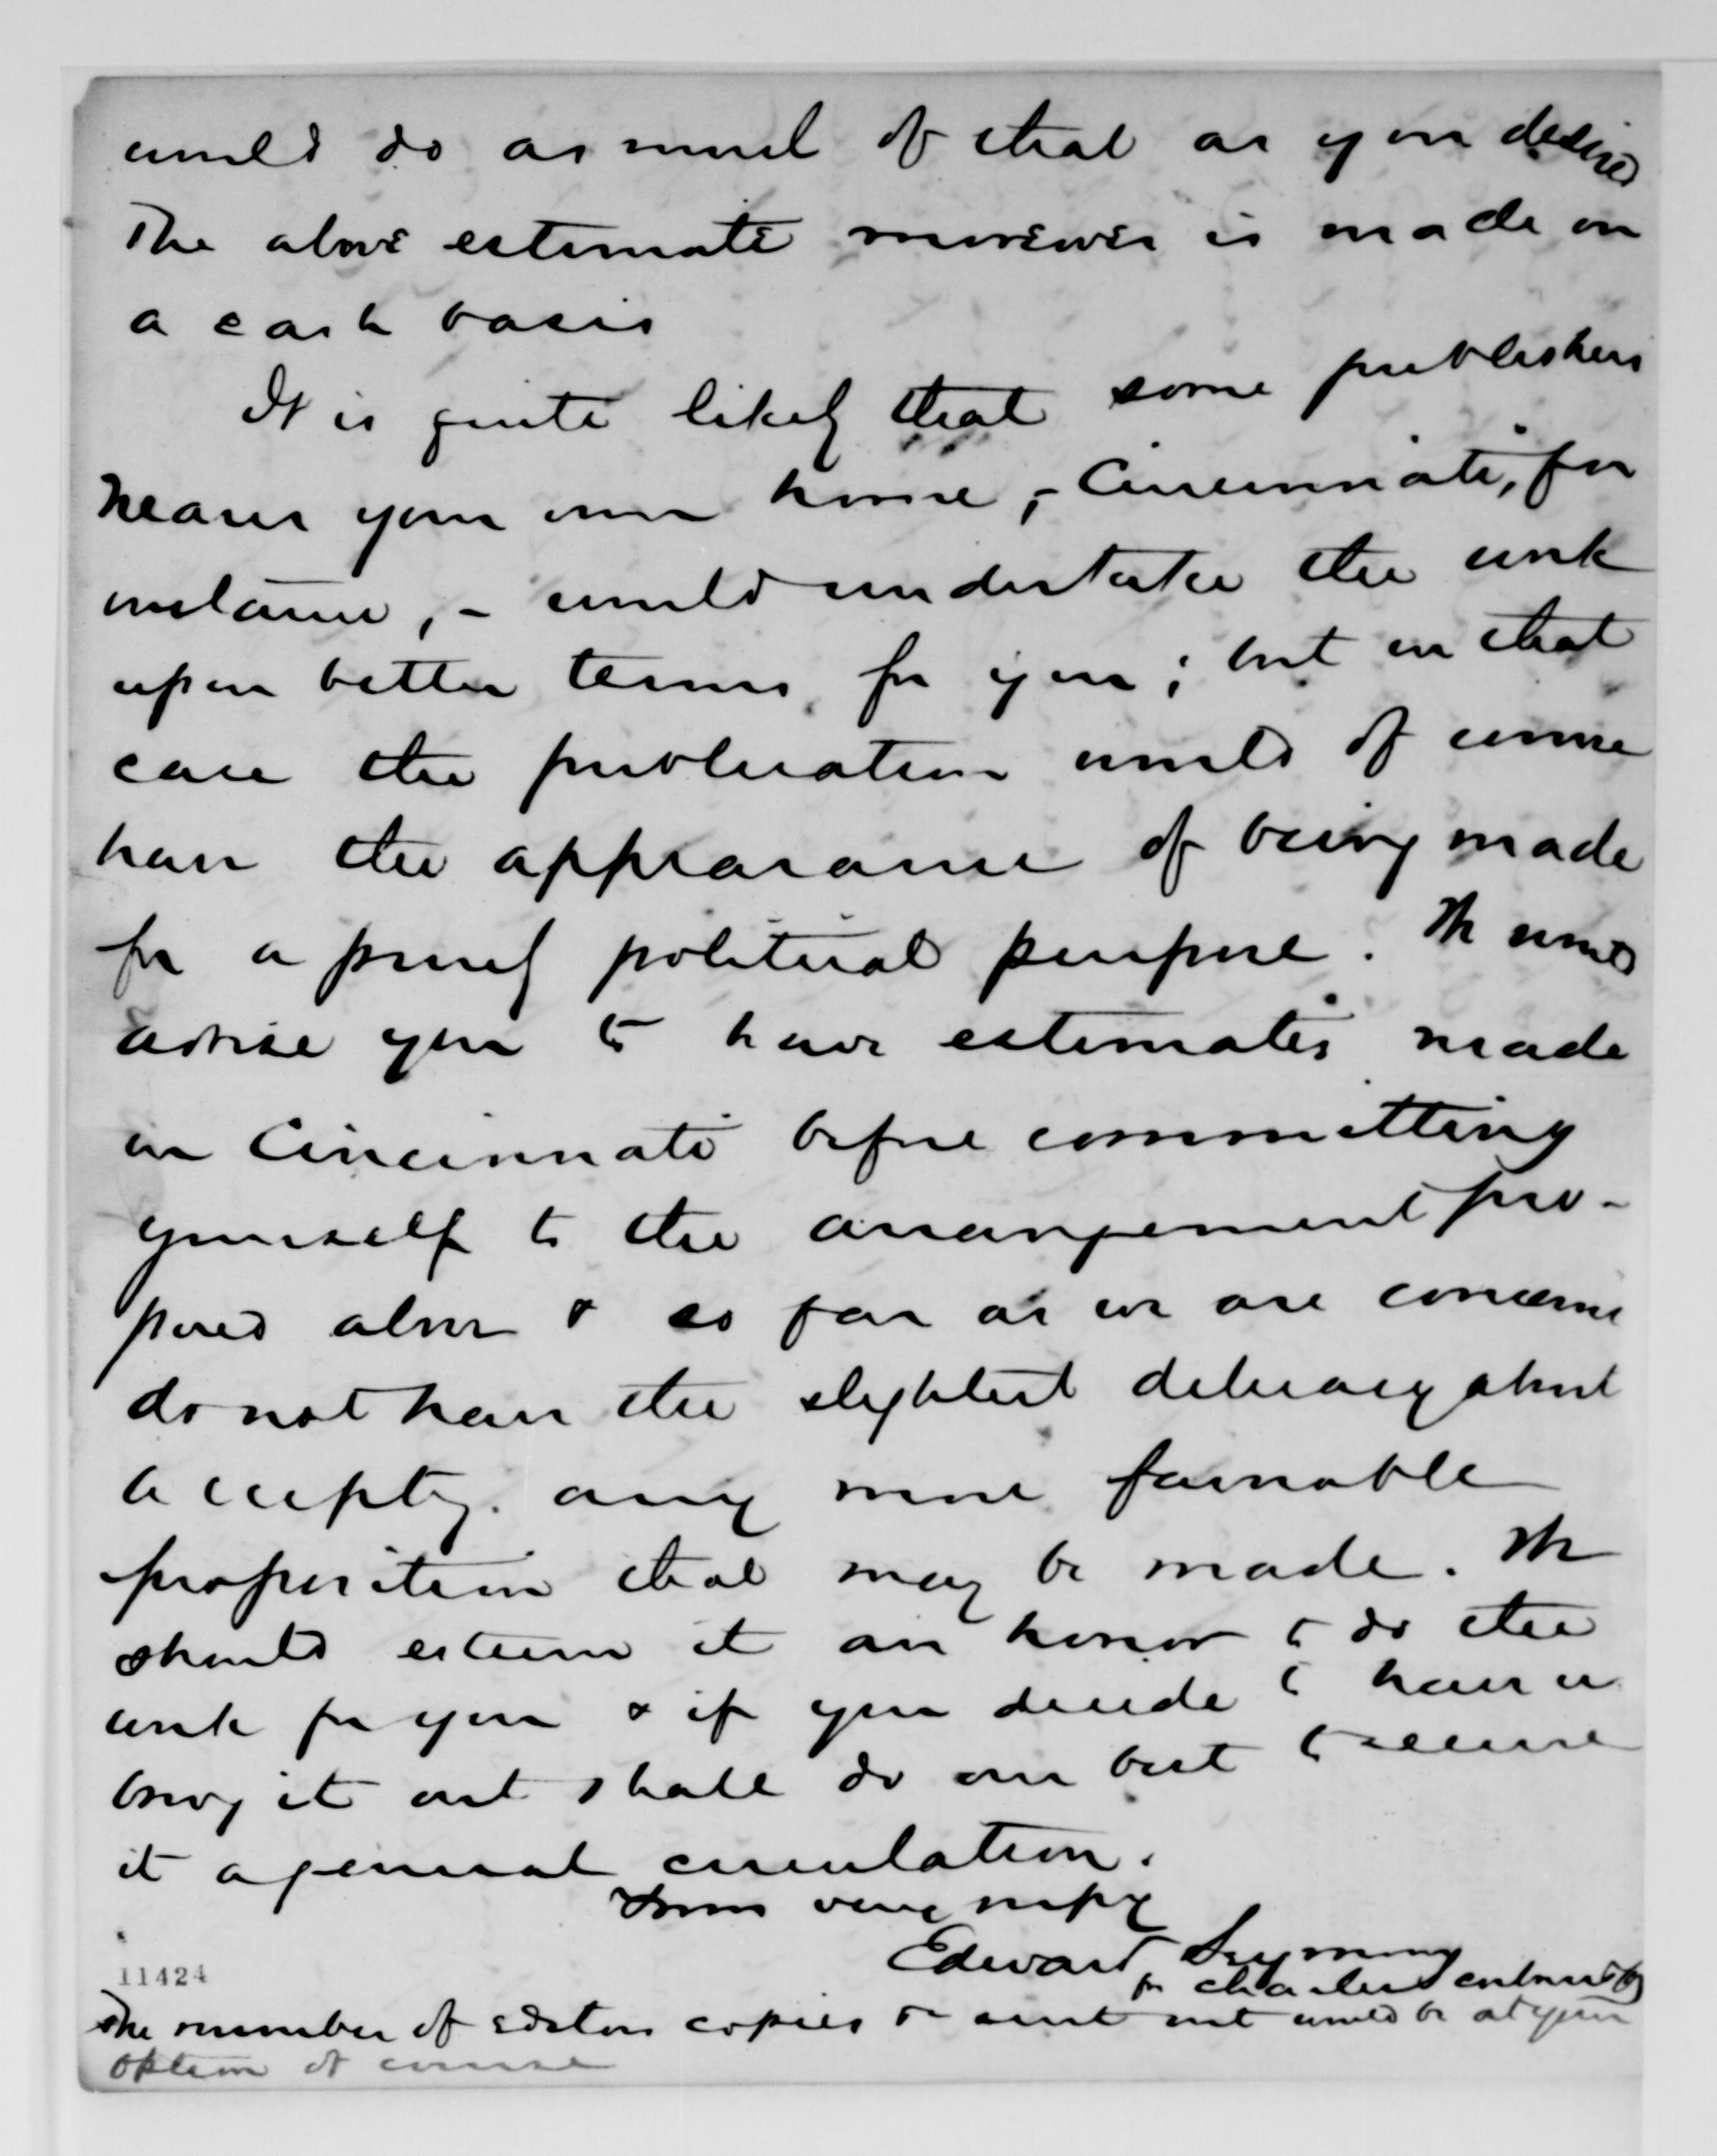 would do as much of that as you desired
The above estimate moreover is made on
a cash basis
It is quite likely that some publishers
nearer your own home, - Cincinnati, for
instance, - would undertake the work
upon better terms for you; but in that
case the publication would of course
have the appearance of being made
for a purely political purpose. We would
advise you to have estimates made
in Cincinnati before committing
yourself to the arrangement pro-
posed above & so far as we are concerned
do not have the slightest delicacy about
accepting any more favorable
proposition that may be made. We
should esteem it an honor to do the
work for you & if you decide to have us
bring it out shall do our best to secure
it a general circulation.
Yours very respy
Edward Seymour
for Charles Scribner & Co
11424
The number of editors copies to send out would be at your
option of course